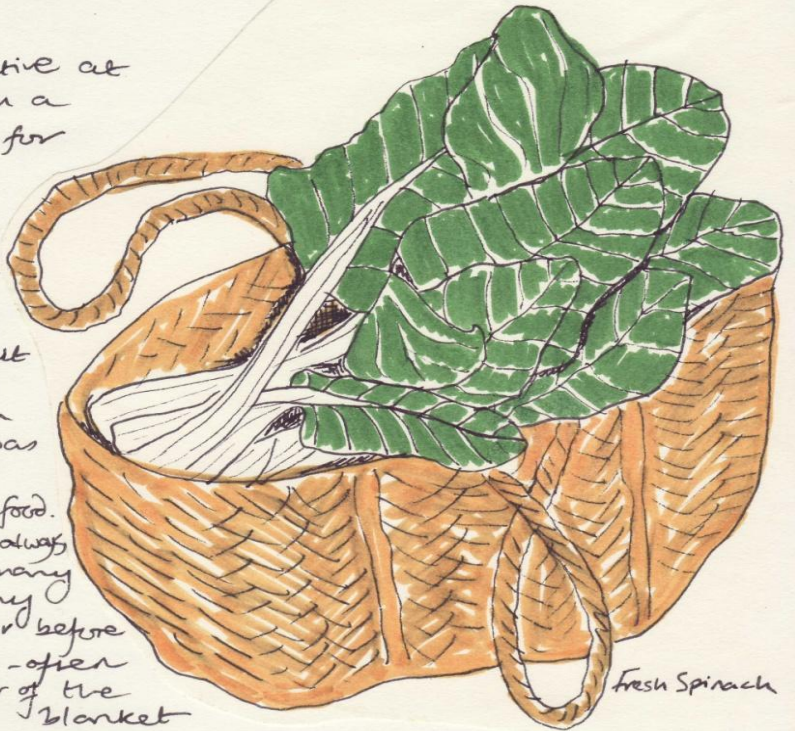 tive at
a
for
as
food.
always
many
my
before
- often
of the
blanket
Fresh Spinach